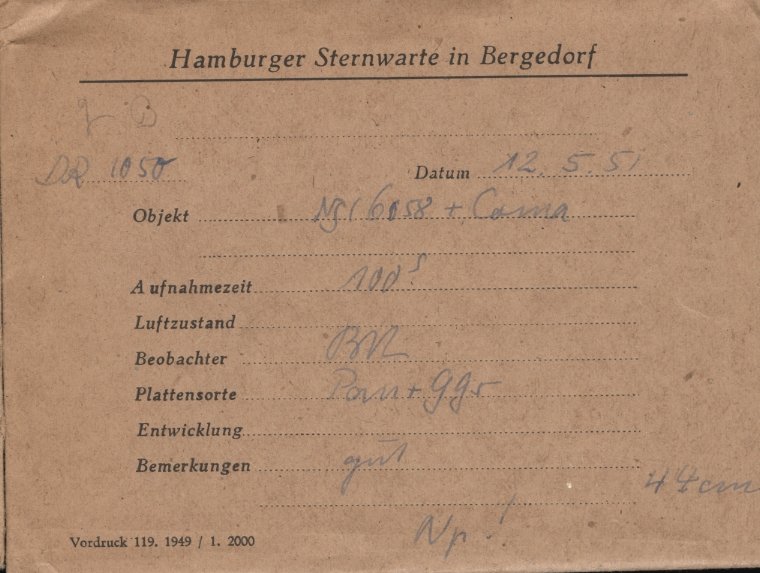 Hamburger Sternwarte in Bergedorf
DR 1050 Datum 12. 5. 51
Objekt 6058 + Coma
Aufnahmezeit 100s
Luftzustand
Beobachter
Plattensorte Pan +
Entwicklung
Bemerkungen gut
44 cm
Np.!
Vordruck 119. 1949 / 1. 2000